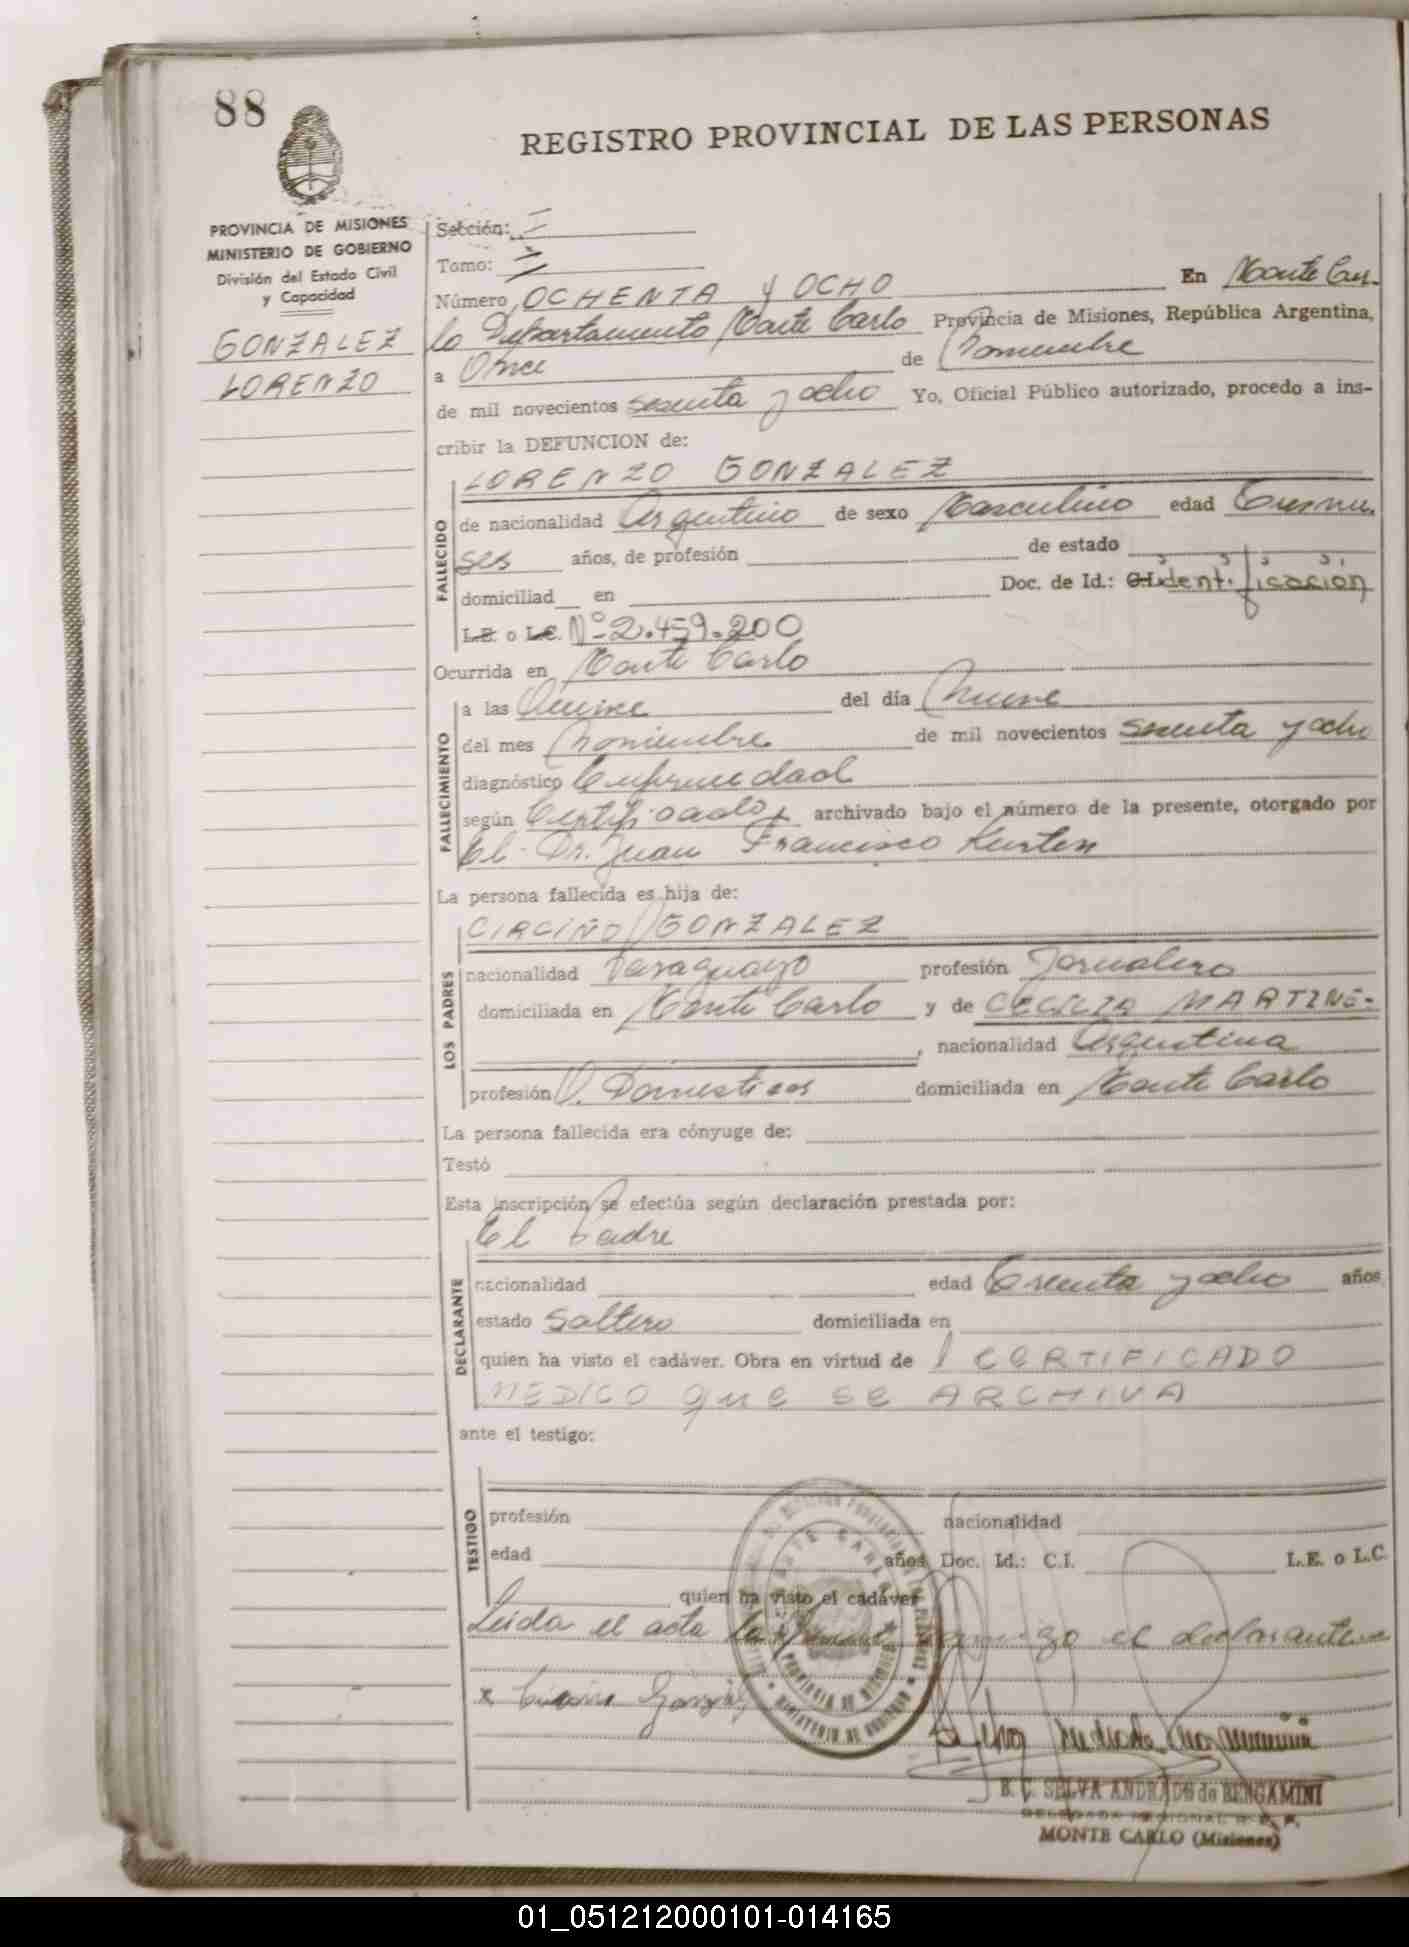 88
REGISTRO PROVINCIAL DE LAS PERSONAS
PROVINCIA DE MISIONES
MINISTERIO DE GOBIERNO
División del Estado Civil
y Capacidad
GONZALEZ
LORENZO
Sección: I
Tomo: I
Número OCHENTA y OCHO En Monte Car-
lo Departamento Monte Carlo Provincia de Misiones, República Argentina,
a Once de Noviembre
de mil novecientos sesenta y ocho Yo, Oficial Público autorizado, procedo a ins-
cribir la DEFUNCION de:
LORENZO GONZALEZ
FALLECIDO
de nacionalidad Argentino de sexo Masculino edad Tres m
ses años, de profesión de estado
domiciliad en Doc. de Id.: C.I. identificacion
L.E. o L.C. Nº 2.459.200
Ocurrida en Monte Carlo
FALLECIMIENTO
a las Quince del día Nueve
del mes Noviembre de mil novecientos sesenta y ocho
diagnóstico Enfermedad
según Certificado, archivado bajo el número de la presente, otorgado por
El Dr. Juan Francisco Kurten
La persona fallecida es hija de:
LOS PADRES
CIRCIÑO GONZALEZ
nacionalidad Paraguayo profesión Jornalero
domiciliada en Monte Carlo y de CECILIA MARTINE-
, nacionalidad Argentina
profesión Q. Domesticos domiciliada en Monte Carlo
La persona fallecida era cónyuge de:
Testó
Esta inscripción se efectúa según declaración prestada por:
El Padre
DECLARANTE
nacionalidad edad Treinta y ocho años
estado Soltero domiciliada en
quien ha visto el cadáver. Obra en virtud de 1 CERTIFICADO
MEDICO que se ARCHIVA
ante el testigo:
TESTIGO
profesión nacionalidad
edad años Doc. Id.: C.I. L.E. o L.C.
quien ha visto el cadáver
Leida el acta la el declarante
x González
MONTE CARLO
PROVINCIA DE MISIONES
MINISTERIO DE GOBIERNO
B. C. SELVA ANDRADE de BENGAMINI
DELEGADA REGIONAL R. P. P.
MONTE CARLO (Misiones)
01_051212000101-014165